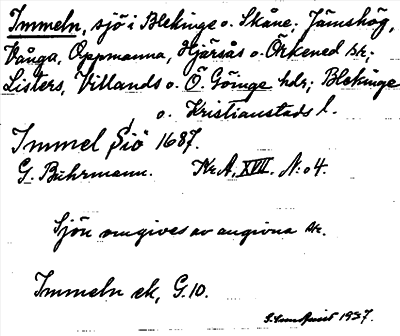 Immeln, sjö i Blekinge o. Skåne. Jämshög,
Vånga, Oppmanna, Hjärsås o. Örkened sr;
Listers, Villands o. Ö. Göinge hdr; Blekinge
o. Kristianstads l.
Immel Siö 1687.
G. Buhrmann. Kr.A, XVII. N:o 4.
Sjön omgives av angivna sr.
Immeln ek, G.10.
G. Lundqvist 1937.